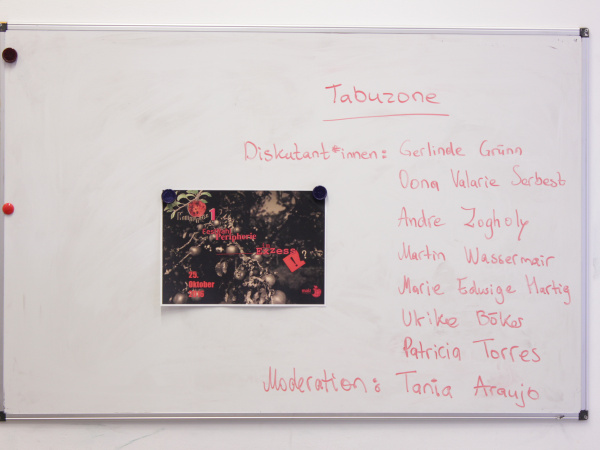 Tabuzone
Diskutant*innen: Gerlinde Grünn
Oona Valarie Serbest
Andre Zogholy
Martin Wassermair
Marie Edwige Hartig
Ulrike Böker
Patricia Torres
Moderation: Tania Araujo
1.
Peripherie
Exzess
29.
Oktober